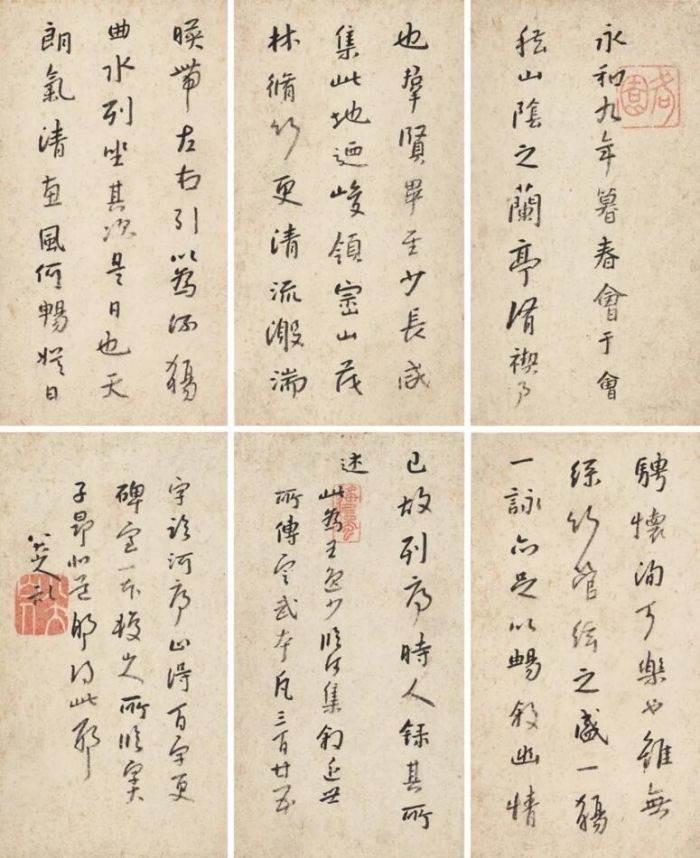 永和九年暮春會于會
稽山陰之蘭亭脩禊事
也羣賢畢至少長咸
集此地迺峻領崇山茂
林脩竹更清流激湍
暎帶左右引以為流觴
曲水列坐其次是日也天
朗氣清惠風和暢娛目
騁懷洵可樂也雖無
絲竹管絃之盛一觴
一詠亦足以暢敘幽情
已故列序時人錄其所
述
此為王逸少臨河集敘近世
所傳定武本凡三百廿五
字臨河序止得百字更
碑一本
子昂得此耶
八大山人